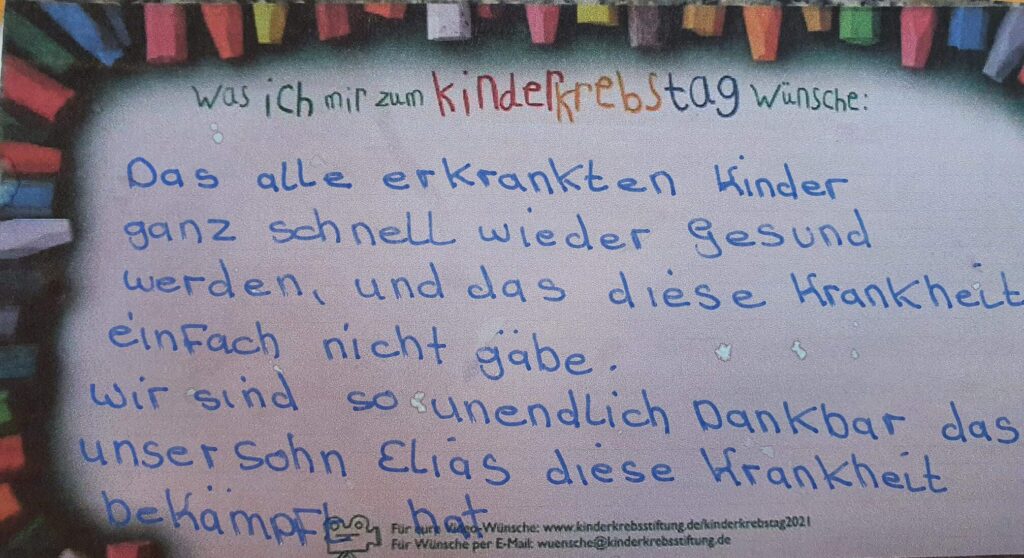 Was ich mir zum Kinderkrebstag wünsche:
Das alle erkrankten Kinder
ganz schnell wieder Gesund
werden, und das diese Krankheit
einfach nicht gäbe.
Wir sind so unendlich Dankbar das
unser Sohn Elias diese Krankheit
bekämpft hat
Für eure Video-Wünsche: www.kinderkrebsstiftung.de/kinderkrebstag2021
Für Wünsche per E-Mail: wuensche@kinderkrebsstiftung.de